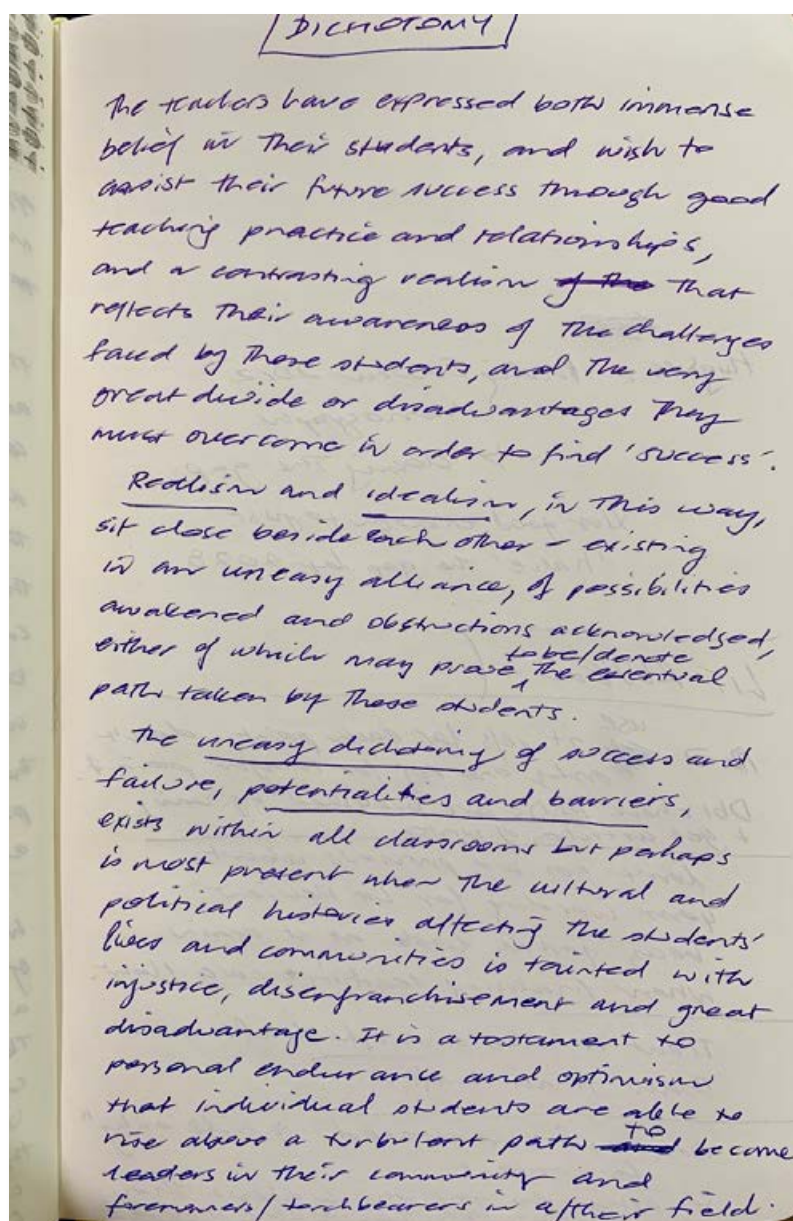 DICHOTOMY
The teachers have expressed both immense
belief in their students, and wish to
assist their future success through good
teaching practice and relationships,
and a contrasting realism of the that
reflects their awareness of the challenges
faced by these students, and the very
great divide or disadvantages they
must overcome in order to find 'success'.
Realism and idealism, in this way,
sit close beside each other - existing
in an uneasy alliance, of possibilities
awakened and obstructions acknowledged,
either of which may prove to be/denote the eventual
path taken by these students.
The uneasy dichotomy of success and
failure, potentialities and barriers,
exists within all classrooms but perhaps
is most present when the cultural and
political histories affecting the students'
lives and communities is tainted with
injustice, disenfranchisement and great
disadvantage. It is a testament to
personal endurance and optimism
that individual students are able to
rise above a turbulent path and to become
leaders in their community and
forerunners/torchbearers in a/their field.